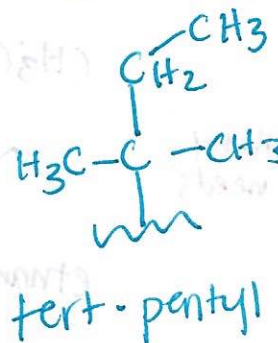 CH3
CH2
H3C-C-CH3
tert-pentyl